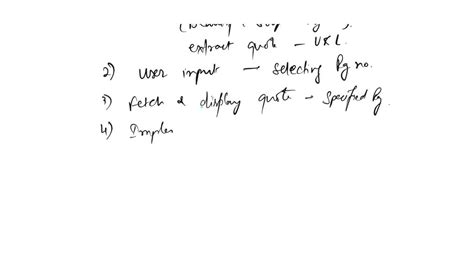 extract quote - URL.
2) user input - selecting Pg no.
3) Fetch & display quote - specified Pg.
4) Imples